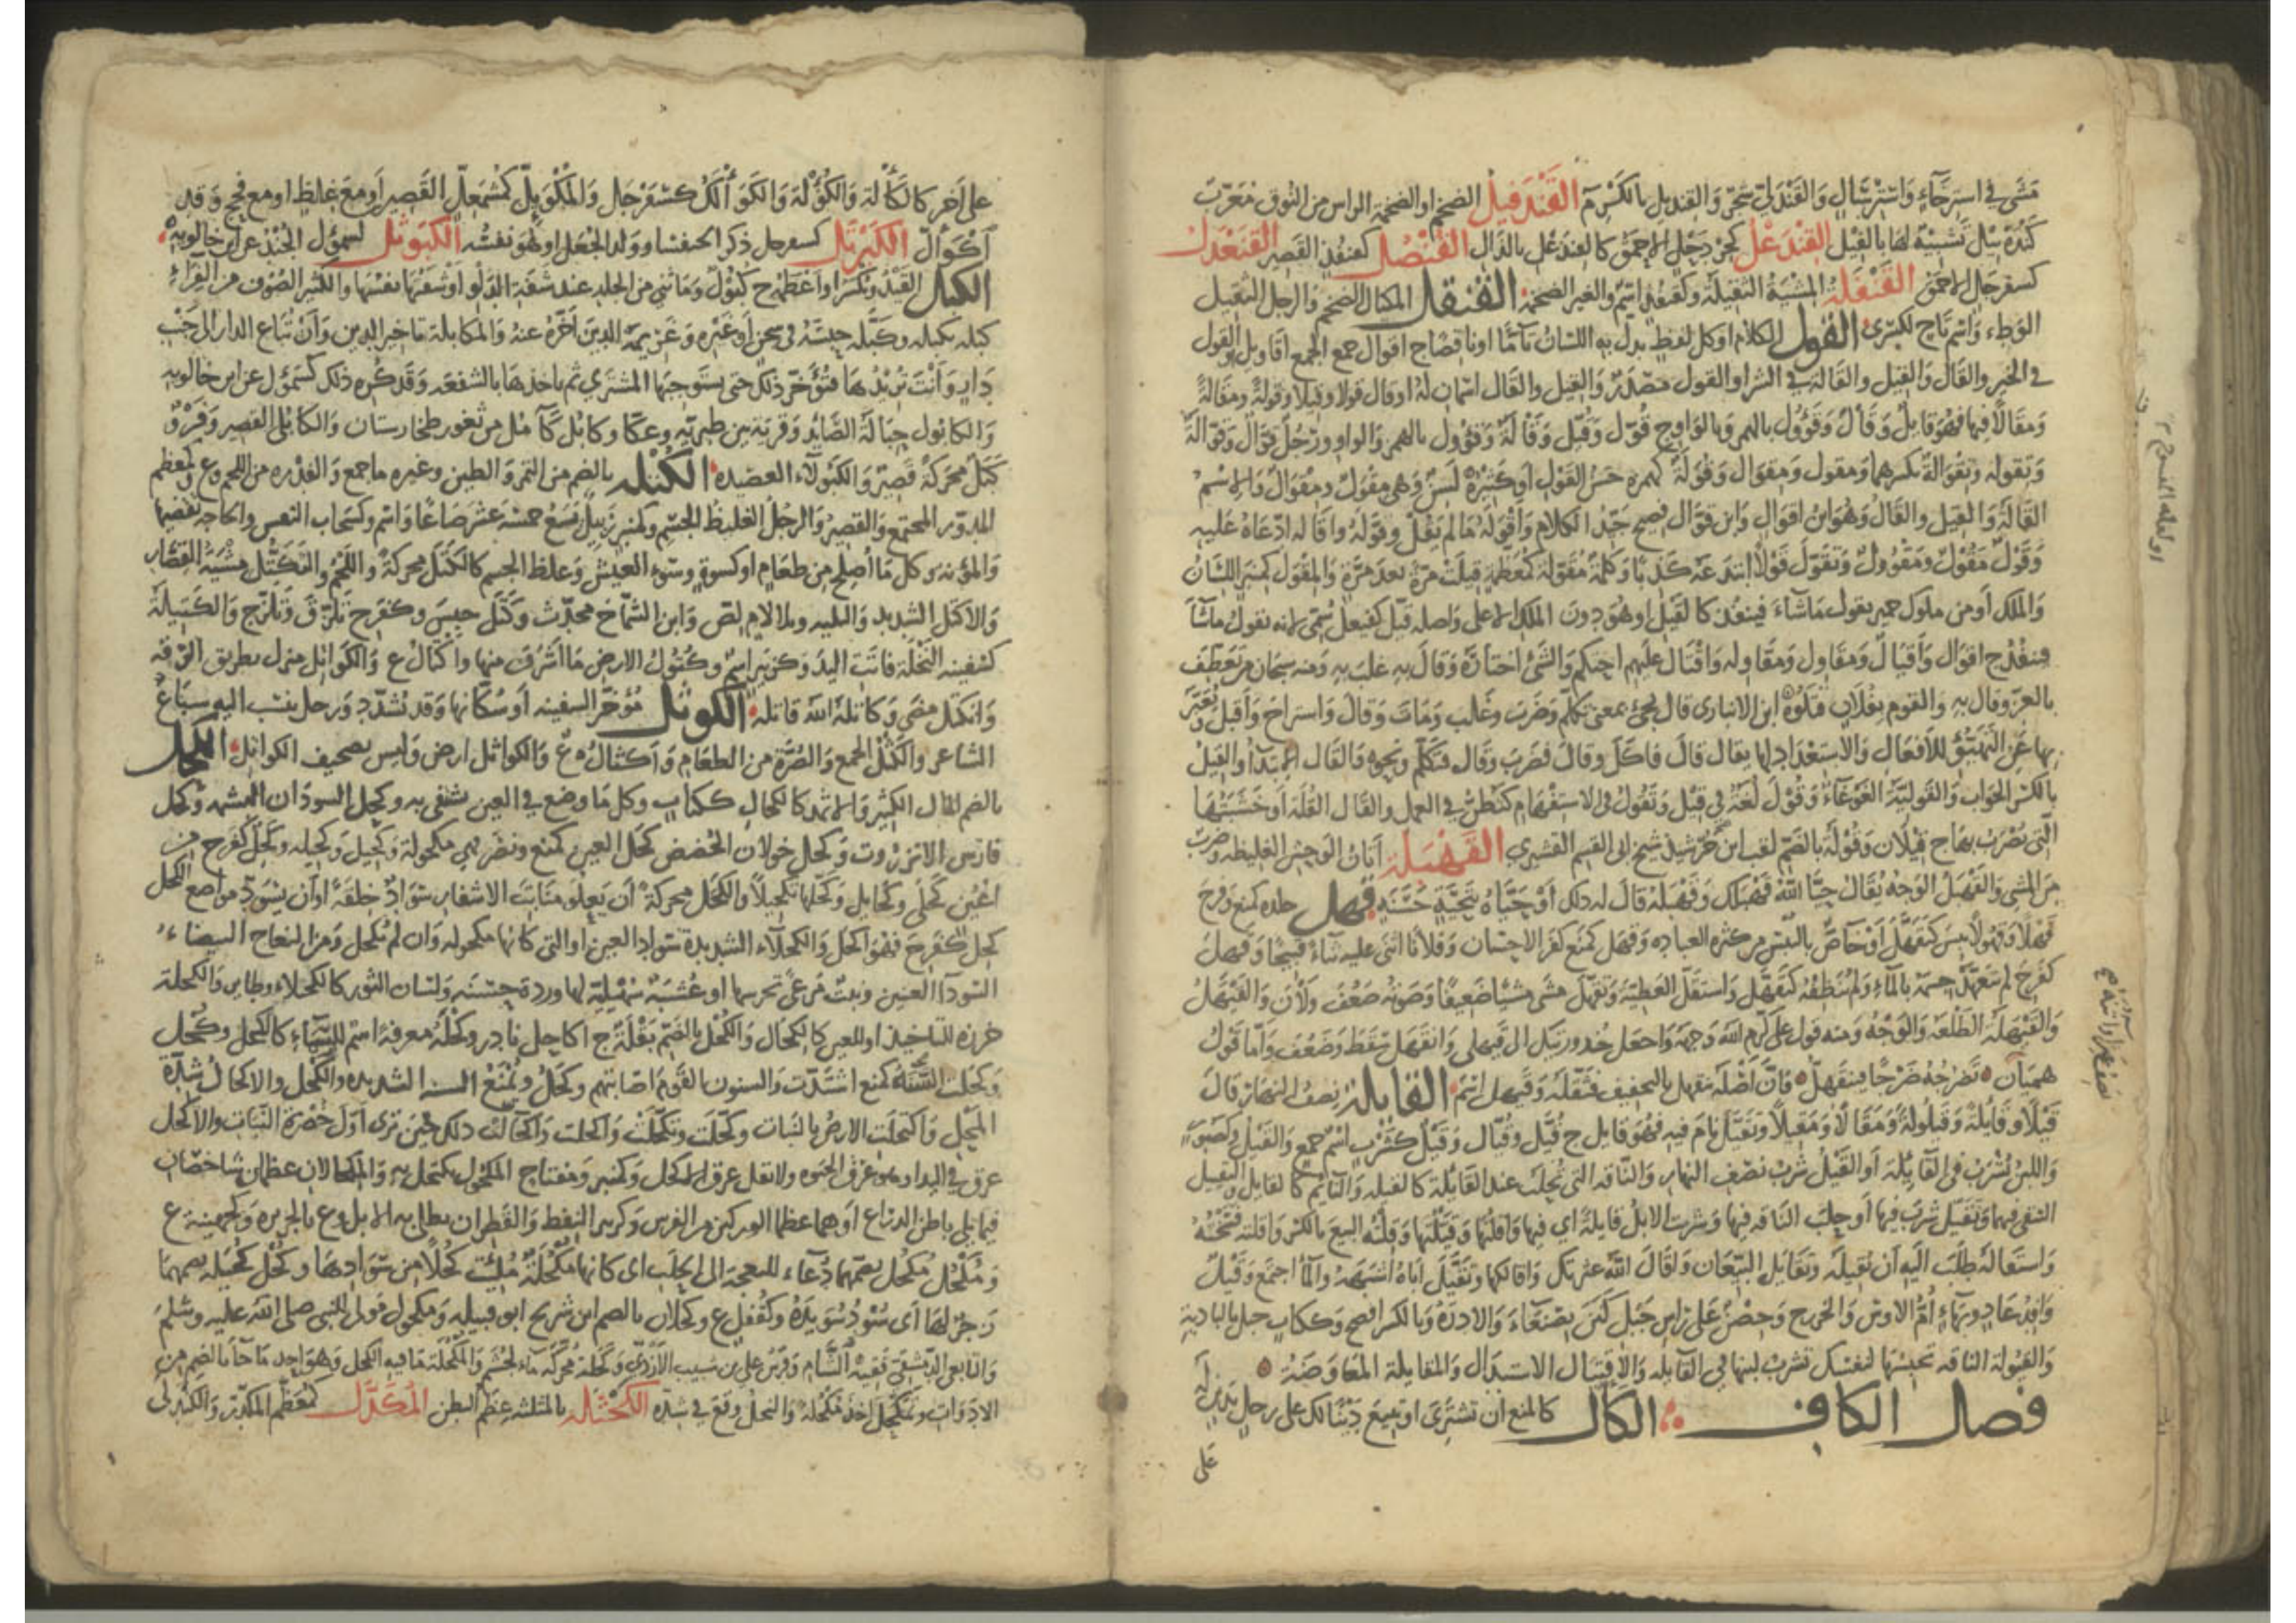 مَشَى في اسْتِرْخَاءٍ وَاسْتِرْسَالٍ وَالقَنْدَلِيّ شجَرٌ وَالقنديل بالكَسْر م القَنْدَفِيلُ الضخم او الضخمة الراس من النُوق مُعَرَّب
كَنْدَه بيْل تَشبِيهٌ لها بالفِيْل القِنْدَعْلُ كجِرْدَحْلٍ الاحمَقُ كالقنذَعْلِ بالذال القُنْصُل كقنفُذٍ القصِير القَنَعْدَل
كسفرجَال الاحمَق القَنْفَلَة المشْيَةُ الثقيلَة وكقنفذٍ اسمٌ والعير الضخمة القُنْقل المكيال الضخم والرجل الثقيل
الوَطءِ وَاسْم تَاج لكِسْرَى القَول الكلام او كل لفظٍ مذِلَ به اللسان تامًّا او ناقصًا ج اقوال جمع الجمع اقاويل او القول
في الخيرِ والقَال وَالقِيل والقَالَة في الشر او القول مصْدَرٌ وَالقيل والقال اسمان له او قال قولا وقيلًا وقولةً ومَقالةً
وَمَقَالًا فيها فَهُوَ قايلٌ وَقَالٌ وَقَؤُولٌ بالهمز وَبالوَاو ج قُوَّل وَقُيَّل وَقَالَةٌ وَقُؤُول بالهمز وَالواو ورَجُلٌ قَوَّالٌ وَقَوّالَةٌ
وَتِقوله وتِقْوالةٌ بكسرهما وَمِقول وَمِقوَال وَقُوَلةٌ كهمزة حَسَنُ القَول اوْ كثيرُهُ لَسِنٌ وَهي مِقْوَلٌ ومِقْوَالٌ وَالاسْمُ
القَالَةُ وَالقِيل والقَالُ وَهُوَ ابن اقوالٍ وَابن قَوَّالٍ فصيح جَيّدُ الكلام وَاقْوَلَهُ مَا لم يَقُلْ وقَوَّلَهُ واقاله ادّعَاهُ عَلَيه
وَقَوْلٌ مَقُوْلٌ وَمَقْؤُولٌ وَتَقَوَّلَ قَوْلًا ابتدَعَه كَذِبًا وَكلمةٌ مُقَوَّلَة كمُعَظَّمةٍ قيلَتْ مَرَّةً بعد مَرَّةٍ وَالمِقْوَل كمنبَر اللسَانُ
وَالمَلك اَو من ملوك حميرَ يقول مَا شَاءَ فينفُذ كالقَيْل او هُوَ دونَ الملك الاعلى وَاصله قَيِّل كفَيعِل سُمِّي لانه يقولُ ماشَاءَ
فينفُذ ج اقوَال وَاقيَال وَمَقَاول وَمَقَاوله وَاقْتَال عَليْهم احتكَم وَالشيْءَ اختارَهُ وَقالَ به غلبَ به وَمنه سبحان من تَعَطَّفَ
بالعزّ وقال به وَالقوم بفُلانٍ قتَلُوهُ ابن الانباري قال يَجيْء بمعنى تكلَّم وَضَرَبَ وَغَلبَ وَمَاتَ وَمالَ وَاسترَاحَ وَاقبَل
بها عَن التهَيُّؤِ للافعَال وَالاسْتِعْدَاد لها يقال قالَ فاكَل وقالَ فضَرَب وَقَال فتَكَلَّمَ وَنَحوه وَالقَال المبتدأ والقِيْلُ
بالكسْر الجَوَاب وَالقَوليَّة الغَوغَاءُ وَقُوْلَ لغة في قِيْل وَتَقُولُ في الاستفهام كتَظُنُّ في العمل والقَال القُلَةُ او خَشَبَتُهَا
التي تضرَب بهَا ج قيْلان وَقُوْلَةُ بالضم لقب ابن خُرَّشيذ شيخ ابي القسم القشيري القَهْبَلَةُ اتانُ الوَحش الغليظه وضربٌ
مِن المشي وَالقَهْبَلُ الوَجْهُ يُقَال حيَّا اللهُ قَهْبَلَك وَقَهْبَلَهُ قالَ له ذلك اوْ حَيَّاهُ بتَحيَّةٍ حَسَنَةٍ قَهل جلده كمنع وَفرِحَ
قَهْلًا وَقُهُولًا يَبسَ كتَقَهَّل اوْ خَاصٌّ باليُبْس من كثره العباده وَقهَل كمنَع كفَر الاحسَان وَفلانًا اثنى عليه ثناءً قبيحًا وَقهِل
كفَرِحَ لم يتعَهَّد جسمَه بالماءِ وَلم يُنَظِّفْهُ كتَقَهَّل وَاستقَلَّ العَطيَّةَ وَتقَهَّل مشَى مَشْيًا ضعيفًا وَصَوتُه ضَعُفَ وَلَانَ وَالقَيْهَلُ
وَالقَيْهَلَةُ الطَّلعَة وَالوَجْهُ وَمنه قول عَلي كرم الله وَجهَهُ وَاجعل حُندورتيك الى قَيْهَلي وَانقَهَل سَقَطَ وَضَعُف وَامّا قَوْلُ
هميَان تضرَحُهُ ضَرْحًا فينقَهِلُّ فانَّ اصْلَه ينقَهِل بالتخفيف فثَقَّلَه وَقيهل اسْم القايلة نِصفُ النهَار قَالَ
قَيْلًا وَقَايِلةً وَقَيلُولَةً وَمَقالًا وَمَقيْلًا وتَقَيَّلَ نَامَ فيه فَهُوَ قايل ج قُيَّل وَقُيَّال وَقَيْل كشَرْبٍ اسْمُ جمع وَالقَيْل وكصَبُورٍ
وَاللبن يُشرَبُ في القَايلَة اوِ القَيْلُ شُرْبُ نصْف النهَار وَالنَّاقة التي تُحلَب عند القَايلَة كالقيله وَالنايم كالقايل والتقييل
السَّقي فيها وَتقَيَّل شَرِبَ فيها اوْ حلَب النَّاقة فيها وَشربت الابلُ قايلةً اي فيها وَاقلْتُهَا وَقَيَّلْتُهَا وَقِلْتُه البيعَ بالكسر وَاقلته فسَخْتُهُ
وَاستَقَالَهُ طلَبَ الَيه اَن يُقيلَه وتقَايَل البَيّعَان وَاقَالَ اللهُ عثرتك وَاقالكها وتَقَيَّل ابَاهُ اشبَهَهُ وَالماءُ اجتمَع وَقَيْلٌ
وَافِدُ عَادٍ وبهَاءٍ اُمُّ الاوس وَالخزرج وَحِصْنٌ عَلى رَاس جَبَل كَنَنَ بصَنعَاءَ وَالادرَةُ وَبالكسر افصح وَككتابٍ جبل بالبادية
وَالقَيُولة الناقه تحبِسُهَا لنفسِك تشرَبُ لبنها في القَايلَه وَالاقتيَال الاستبدَال وَالمقايلة المعَاوضَةُ
فصل الكاف الكأل كالمنع ان تشترِيَ او تبيعَ دَيْنًا لك على رجلٍ بدَينٍ لَه
عَلى
او لعله النسوح
على آخر كالكَأْلَة وَالكُؤْلَة وَالكَوَأْلَل كسفَرْجَل وَالمُكْوَئِلّ كمُشْمَعِلّ القَصِير اَو مَعَ غِلَظٍ او مع فَحج وَقد
اكْوَأَلّ الكَبَرْتَل كسفرجل ذكر الخنفسا وولد الجُعَل او هُوَ نفسُه الكَبَوْثَل لسموأل الجُنْدُ عن ابن خالويه
الكبل القَيْدُ وَيُكسَر او اعْظمُه ج كُبُوْلٌ وَمَا ثُنِيَ من الجلد عند شَفَة الدَّلو اوْ شَفَتُهَا نفسُها والكثير الصُوف من الفِرَاءِ
كبله يكبله وكَبَّلَه حبسَهُ في سِجنٍ اَو غَيْره وَغَريمه الدينَ اَخَّرَه عنهُ وَالمكابلة تاخير الدين وَاَنْ تُبَاع الدار الى جَنْب
دَاركِ وَاَنْتَ تُريْدُهَا فتُؤَخِّرُ ذلك حتى يستَوجِبَها المشتري ثم ياخذهَا بالشفعَه وَقَد كُرِه ذلك كسَمَوأل عن ابن خالويه
وَالكابُول حِبَالَةُ الصَّايد وَقريَة بين طبريّه وعَكَّا وكابُل كآمُل من ثغور طخارستان وَالكابُلِيّ القصير وَفَرْوٌ
كَبَلٌ محركَةً قصِيْرٌ وَالكَبُوْلَاءِ العصيده الكُتْلَه بالضم من التمر وَالطين وغيره ما جمع وَالفدْره من اللحم وع وكمعَظم
المدَوّر المجتمع وَالقصيرُ وَالرجُل الغليظ الجسْم وكمنبر زبيلٌ يَسَعُ خمسَة عشَر صَاعًا وَاسْم وكسَحَاب النفس والحاجَه تقضِيها
وَالمؤنة وَكل مَا اُصلح من طعَام او كسوةٍ وَسُوء العَيْش وَغلظ الجسم كالكَتَل محركةً واللحمُ والتكَتُّل مِشيَةُ القصَار
وَالاكتَل الشديد وَالبليه وبلا لام لصّ وَابن الشّمَّاخ محدّث وَكَتَل حبَسَ وكفرِح تَلَزَّق وَتَلَزَّج وَالكَتِيْلَةُ
كسَفِينه النخْلَة فاتت اليدَ وكزبَير اسمٌ وَكُتُول الارض مَا اَشْرَف منها وَاكتَال ع وَالكَوَاتل منزل بطريق الرَّقه
وَانكتَل مضَى وَكاتلهُ الله قاتله الكَوثَل مُؤَخَّر السفينه اَو سُكَّانها وَقد تُشدّد وَرجل ينسَب اليه سبَاع
الشاعر والكَثْل الجمع وَالصُّبْرَةُ من الطعَام وَاكثَال ع وَالكواثل ارض وَليس بصحيف الكواتل الكحل
بالضم المال الكثير وَالاثمد كالكحال ككتَاب وكل مَا وضع في العين يشتفى به وَكحل السودَان البشمه وَكحل
فارس الانزرُوت وَكحل خولان الحُضض كحَل العين كمنع ونصَر فهي مكحولة وَكحيل وَكحيله وَكحِل كفرح من
اعْيُنٍ كَحلَى وَكَحايل وَكَحّلها تكحيلًا والكحَل محركةً ان يَعلُو منَابت الاشفار سَوَادٌ خِلقَةً او اَن يسْوَدّ مواضع الكحل
كحل كفرِح فهُوَ اكحَل وَالكحلَاء الشديدة سوَاد العين او التي كانها مكحوله وَان لم تُكحل وَمن النعاج البيضَاءُ
السَّوْدَا العَينين وَنبتٌ مَرعًى للنحل او عُشْبَةٌ سُهليّه لها وردة حسنَة وَلسان الثور كالكحيلاء وطاير وَالكحلة
خرزه للتاخيذ او للعين كالكحَال وَالكُحل بالضم بَقْلَة ج اكاحل نادِر وكَحْلَةُ معرفة اسم للسماء كالكحل وَكُحل
وكحَلت السَّنة كمنع اشتدّت وَالسنون القوم اصَابتهم وَكحْلُ وَتُمْنَعُ السنه الشديده والكحل والاكحال شدّة
المحْل وَاكتحلَت الارضُ بالنبات وكحّلَت وَتكحّلَت وَاكحلت وَاكحَالت وَذلك حين تُرى اَوّل خُضرة النبَات والاكحل
عرق في اليد او هو عرق الحيوه ولا تقل عرق الاكحل وَكمنبر وَمفتاح الملمول يكتحل به وَالمكحالان عظمان شاخصَان
فيما يلي باطن الذراع اَو هما عظما الوركين من الفرس وَكزبير النفط وَالقطران يطلى به الابل وع بالجزيرة وَكجهينة ع
وَمُكْحُل مُكْحُل بضمهما دُعَاء للنعجه الى الحلَب اي كانها مُكحُلَةٌ مُلئت كُحْلًا من سَوَادهَا وَكُحْل كُحَيْلَة بضمهمَا
زجرٌ لهَا اي سُوْدٌ سُوَيدَةُ وكقُفْل ع وكحلان بالضم ابن شريح ابو قبيله وَمكحول مَولى النبي صَلى الله عليه وَسَلم
وَالتابعي الدِمَشقي فقيهُ الشام وَفرسُ علي بن شبيب الازدي وَكَحْلَةُ مُحركَة ماءٌ لجُشَم وَالمُكْحُلَة مَا فيه الكحل وَهُوَ احَد مَا جَاءَ بالضم من
الادوَات وَتَمَكحَل اخَذ مُكحُلَة وَالرجل وقع في شدّه الكَحْثَله بالمثلثه عِظَم البَطن المُكَدَّل كمُعظَّم المكدّر وَالكَنْدلى